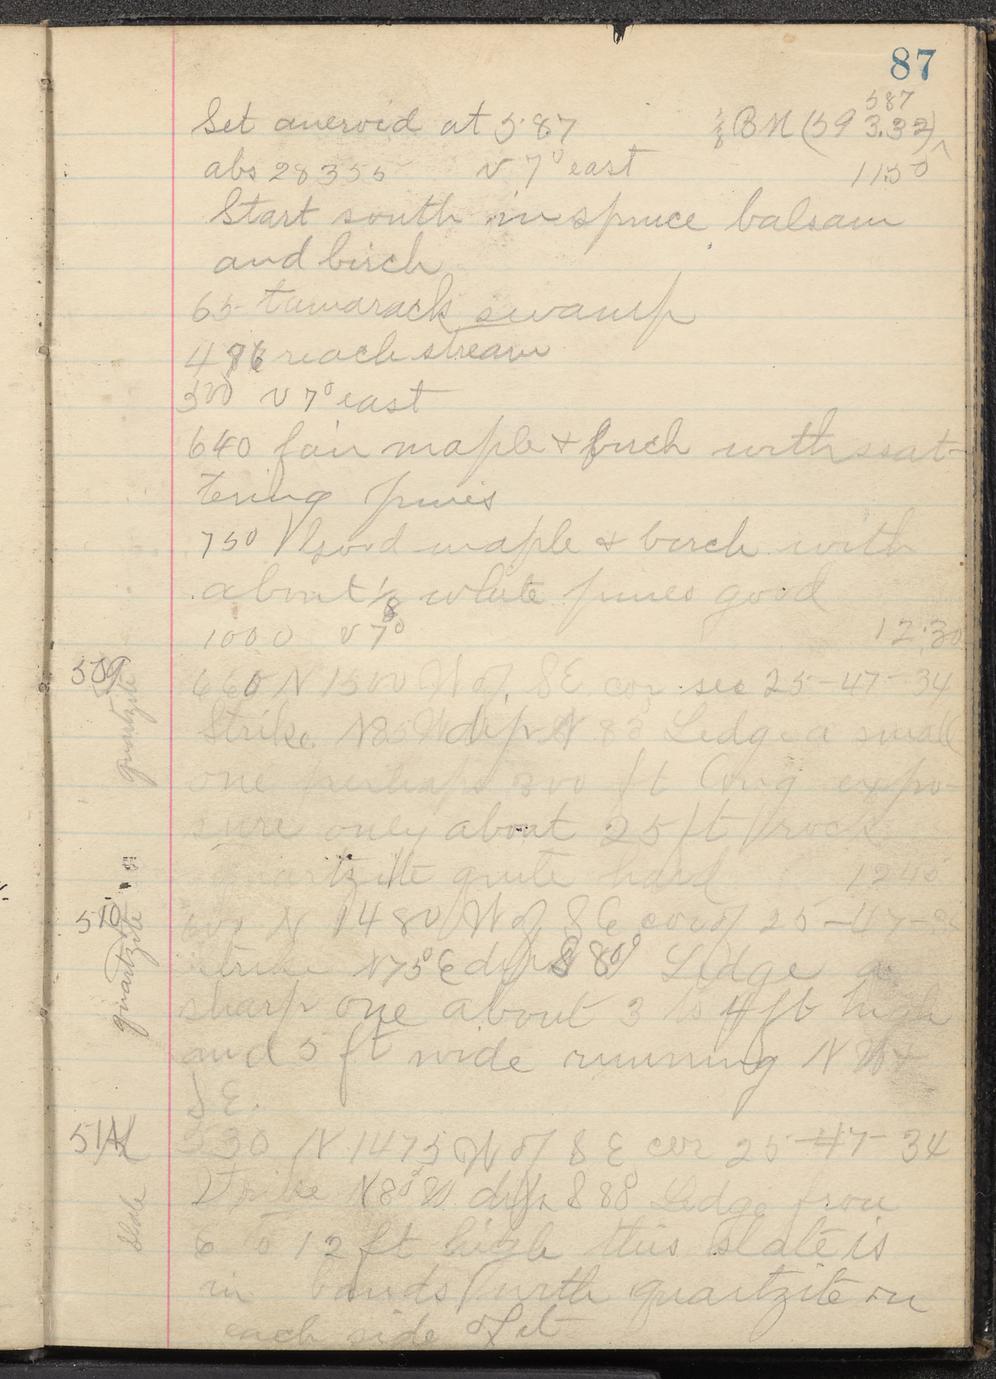 87
587
Set aneroid at 587 BM (593.32)
abs 28355 v 7° east 1150
Start south in spruce balsam
and birch
65 tamarack swamp
486 reach stream
500 v 7° east
640 fair maple & birch with scat-
tering pines
750 good maple & birch with
about 1/8 white pines good
1000 v 7° 12:30
509 660 N 1500 W of SE cor sec 25-47-34
quartzite
Strike N85W dip N 83 Ledge a small
one perhaps 300 ft long expo-
sure only about 25 ft rock
quartzite quite hard 1240
510 N 1480 W of SE cor of 25-47-
quartzite
strike N75°E dip S 80° Ledge a
sharp one about 3 to 4 ft high
and 5 ft wide running NW &
SE.
511 530 N 1475 W of SE cor 25-47-34
Slate
Strike N80°W dip S 88° Ledge from
8 to 12 ft high this slate is
in bands with quartzite on
each side of it